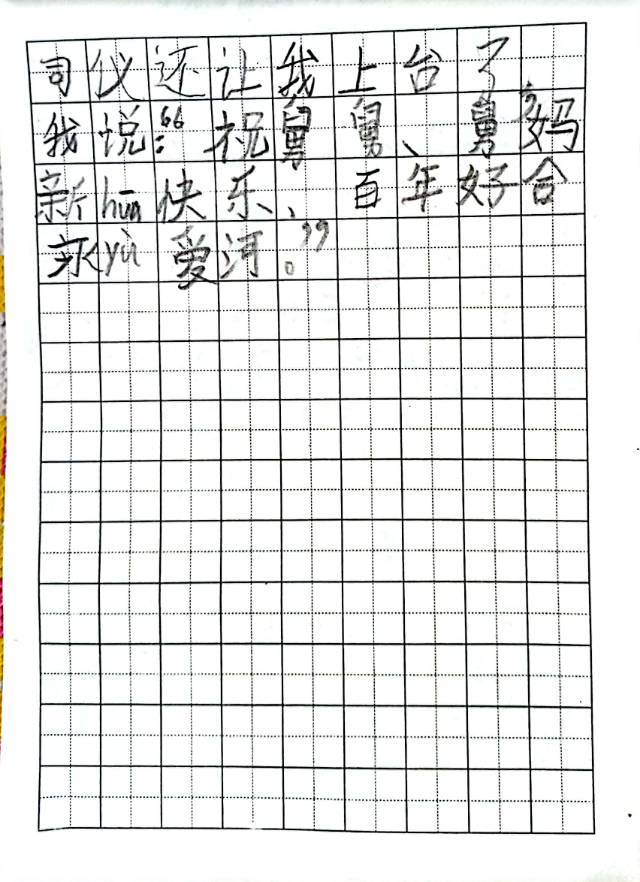 司仪还让我上台了，
我说：“祝舅舅、舅妈
新hūn快乐、百年好合
永yù爱河。”